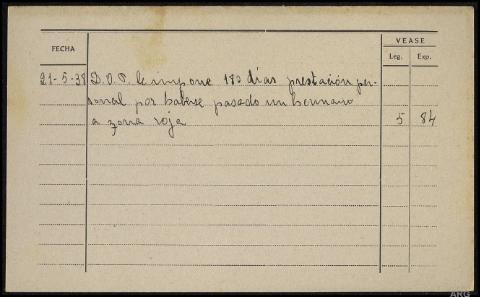 FECHA
VEASE
Leg. Exp.
21-5-38 D.O.P. le impone 180 días prestación per-
sonal por haberse pasado un hermano
a zona roja 5 84
ARG